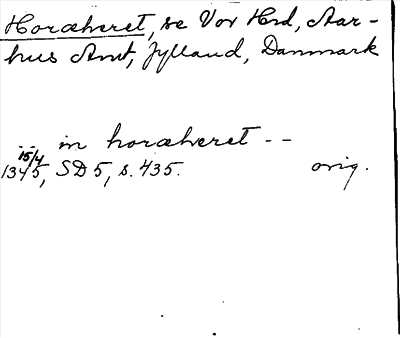 Horæheret, se Vor Hrd, Aar-
hus Amt, Jylland, Danmark
-- in horæheret --
15/4
1345, SD 5, s. 435. orig.